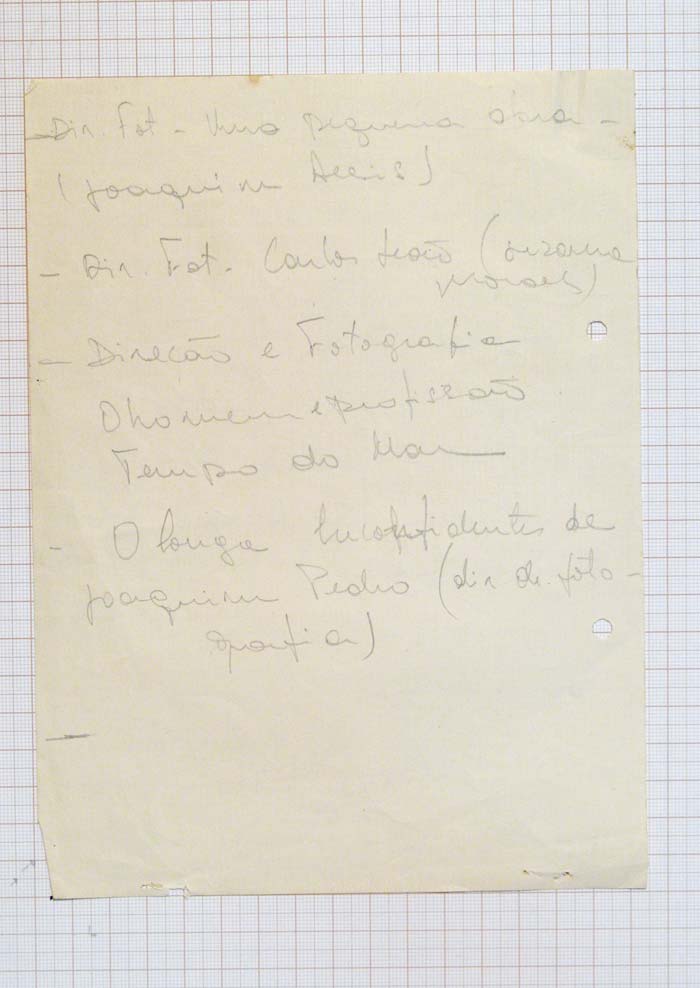 - Dir. Fot - Uma pequena obra -
(Joaquim Assis)
- Dir. Fot. Carlos Leão (Suzana
Moraes)
- Direcão e Fotografia
O homem e profissão
Tempo do Mar
- O longa Inconfidentes de
Joaquim Pedro (dir de. foto-
grafia)
-